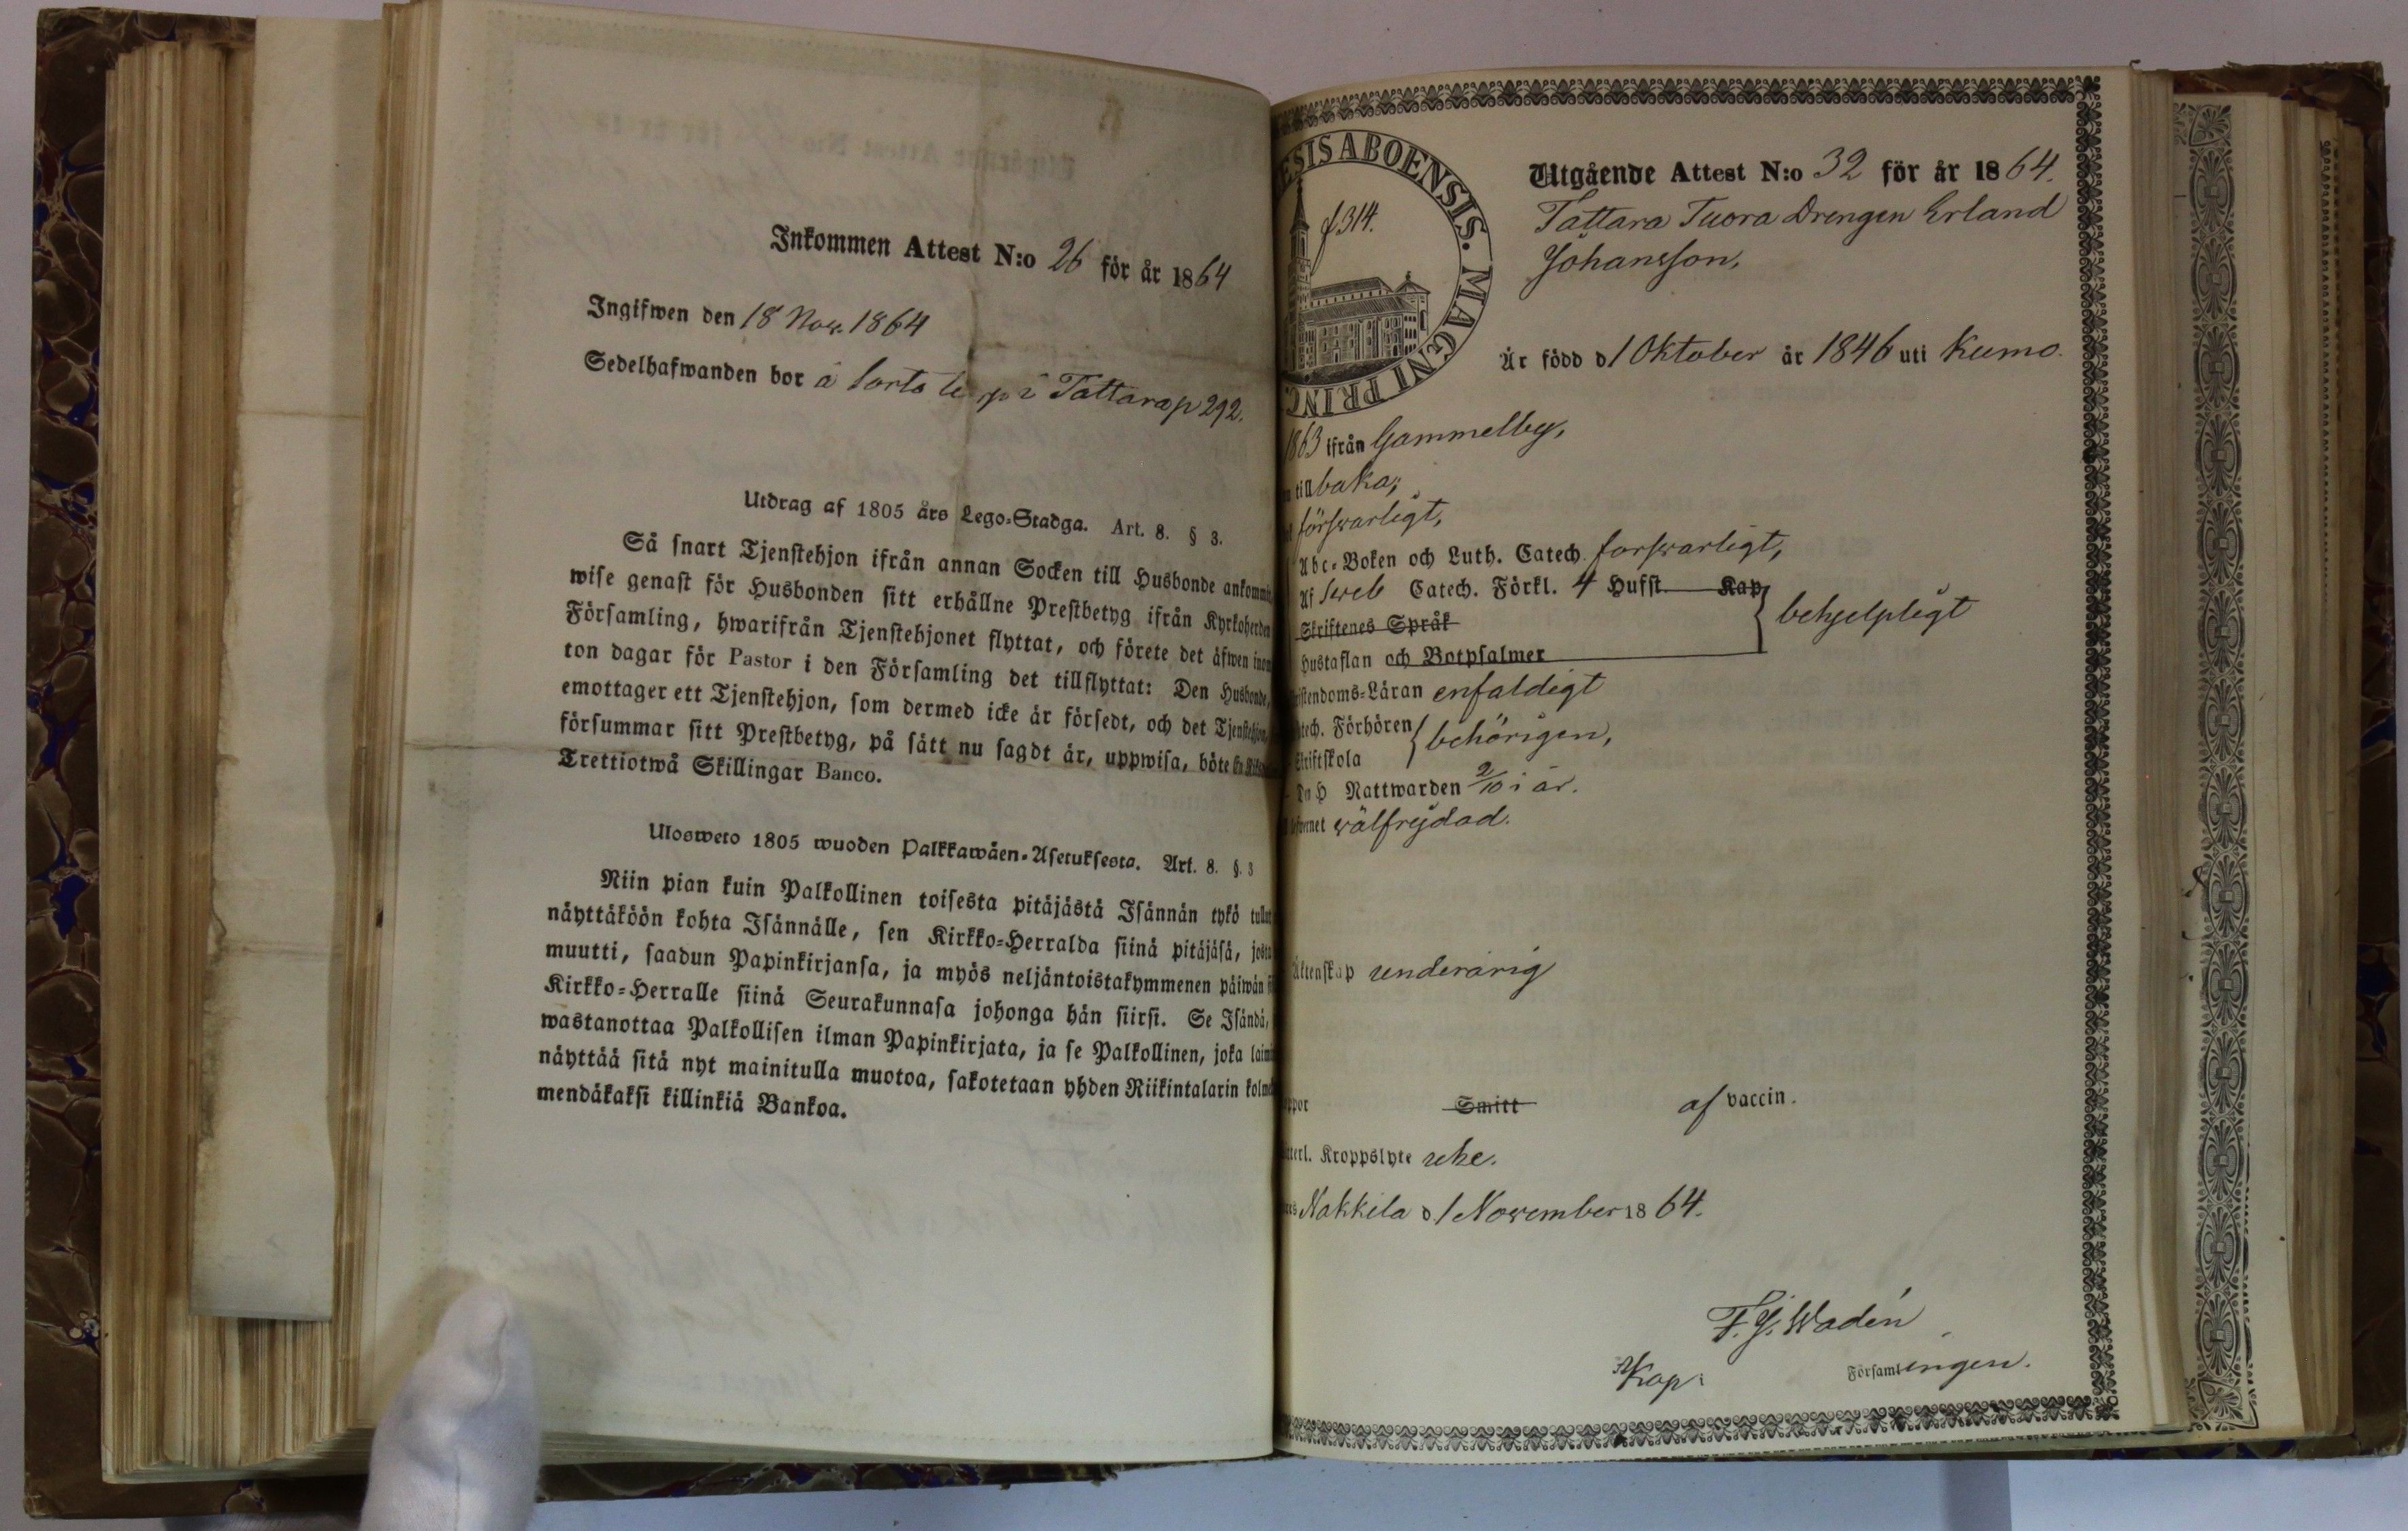 Inkommen Attest N:o 26 för år 1864
Ingifwen den 18 Nov. 1864
Sedelhafwanden bor å i Tattara p 292.
Utdrag af 1805 års Lego-Stadga. Art. 8. § 3.
Så snart Tjenstehjon ifrån annan Socken till Husbonde ankommit,
wise genast för Husbonden sitt erhållne Prestbetyg ifrån Kyrkoherden
Församling, hwarifrån Tjenstehjonet flyttat, och förete det äfwen inom
ton dagar för Pastor i den Församling det tillflyttat: Den Husbonde,
emottager ett Tjenstehjon, som dermed icke är försedt, och det Tjenstehjon,
försummar sitt Prestbetyg, på sätt nu sagdt är, uppwisa, böte En
Trettiotwå Skillingar Banco.
Ulosweto 1805 wuoden Palkkawäen-Asetuksesta. Art. 8. §. 3
Niin pian kuin Palkollinen toisesta pitäjästä Isännän tykö tullut
näyttäköön kohta Isännälle, sen Kirkko-Herralda siinä pitäjäsä, josta
muutti, saadun Papinkirjansa, ja myös neljäntoistakymmenen päiwän
Kirkko-Herralle siinä Seurakunnasa johonga hän siirsi. Se Isändä,
wastanottaa Palkollisen ilman Papinkirjata, ja se Palkollinen, joka laimi
näyttää sitä nyt mainitulla muotoa, sakotetaan yhden Riikintalarin kolme
mendäkaksi killinkiä Bankoa.
ESIS ABOENSIS. MAGNI PRINC
f 314.
Utgående Attest N:o 32 för år 1864.
Tattara Tuora Drengen Erland
Johansson,
Är född d 1 Oktober år 1846 uti Kumo.
1863 ifrån Gammelby,
tillbaka;
förswarligt,
Abc-Boken och Luth. Catech. forswarligt,
Af Sweb Catech. Förkl. 4 Hufst. Kap
Skriftenes Språk
Hustaflan och Botpsalmer
behjelpligt
istendoms-Läran enfaldigt
tech. Förhören
Skriftskola
behörigen,
Den H Nattwarden 2/10 i år.
efwernet wälfrejdad.
Äktenskap underårig
ppor Smitt af vaccin.
tterl. Kroppslyte icke.
Nakkila d 1 November 1864.
F. G. Wadén
Kap. Församlingen.